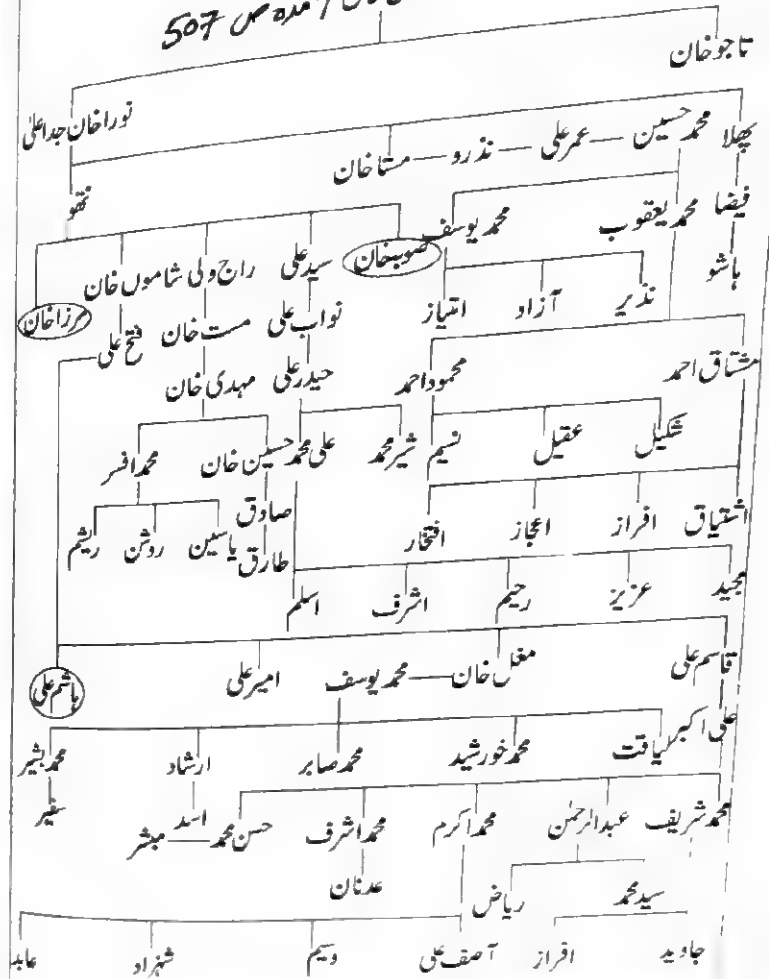 آمدہ ص 507
تاجوخان
نوراخان جداعلیٰ
پھلا محمد حسین عمر علی نذرو مستاخان
نتھو
فیضا محمد یعقوب محمد یوسف
صوبہخان سید علی راج ولی شاموں خان مرزاخان
ہاشو
نذیر آزاد امتیاز
نواب علی مست خان فتح علی
مشتاق احمد محمود احمد
حیدر علی مہدی خان
شکیل عقیل نسیم
شیر محمد علی محمد حسین خان محمد افسر
اشتیاق افراز اعجاز افتخار
صادق
یاسین روشن ریشم
طارق
مجید عزیز رحیم اشرف اسلم
قاسم علی مغل خان محمد یوسف امیر علی ہاشم علی
علی اکبر
لیاقت محمد خورشید محمد صابر ارشاد محمد بشیر
اسد سفیر
محمد شریف عبدالرحمٰن محمد اکرم محمد اشرف حسن محمد مبشر
عدنان
سید محمد ریاض
جاوید افراز آصف علی وسیم شہزاد عابد